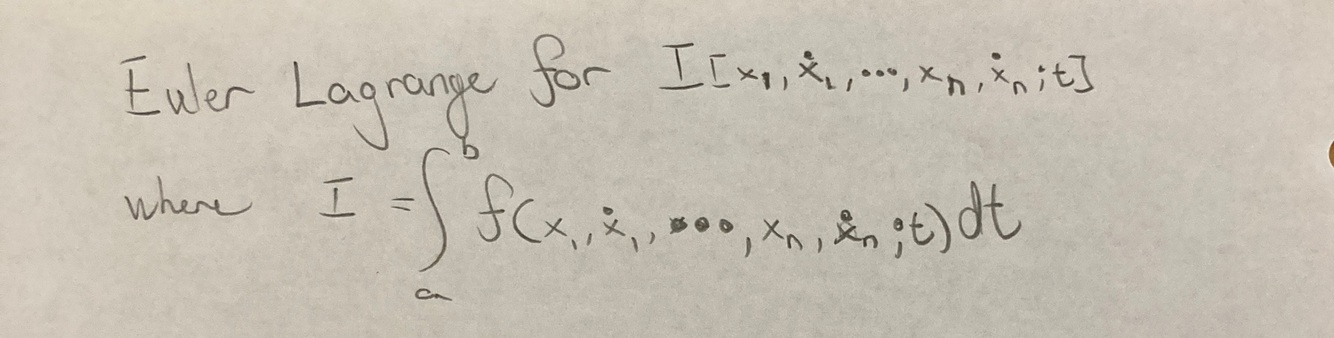 Euler Lagrange for I[x₁, ẋ₁, ..., xₙ, ẋₙ; t]
where I = ∫ₐᵇ f(x₁, ẋ₁, ..., xₙ, ẋₙ; t) dt